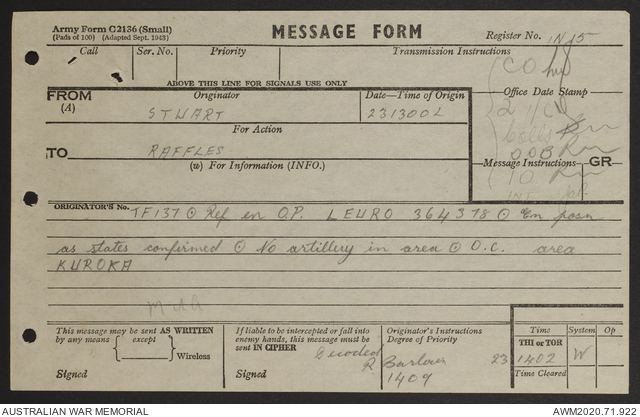 Army Form C2136 (Small)
(Pads of 100) (Adapted Sept. 1943)
MESSAGE FORM
Register No. IN 15
Call
Ser. No.
Priority
Transmission Instructions
CO
ABOVE THIS LINE FOR SIGNALS USE ONLY
FROM
(A)
Originator
STWART
Date—Time of Origin
231300L
Office Date Stamp
2 I/C
For Action
TO
RAFFLES
(w) For Information (INFO.)
Message Instructions
GR
IO
INT
ORIGINATOR'S No.
TF137 ⊙ Ref en O.P. LEURO 364378 ⊙ En posn
as states confirmed ⊙ No artillery in area ⊙ O.C. area
KUROKA
This message may be sent AS WRITTEN
by any means { except } Wireless
Signed
If liable to be intercepted or fall into
enemy hands, this message must be
sent IN CIPHER
Decoded
R Barlow
1409
Signed
Originator's Instructions
Degree of Priority
Time
System
Op
THI or TOR
23 1402 W
Time Cleared
AUSTRALIAN WAR MEMORIAL
AWM2020.71.922